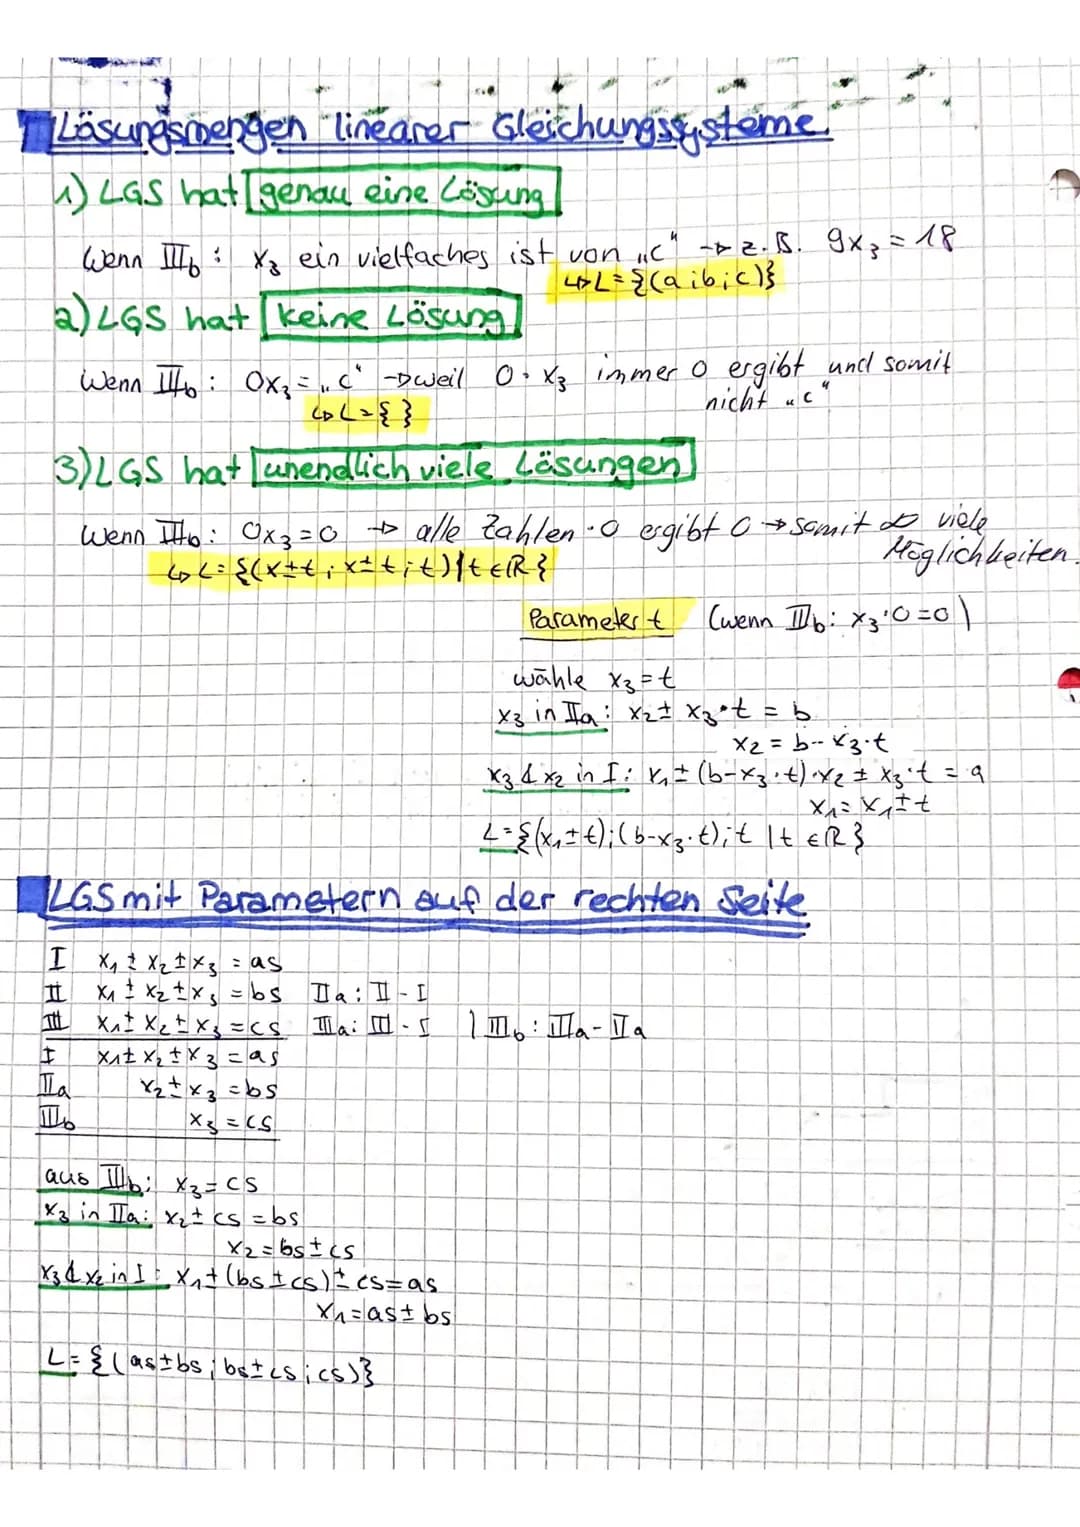 Lösungsmengen linearer Gleichungssysteme.
1) LGS hat genau eine Lösung
Wenn IIIb : x₃ ein vielfaches ist von „c“ → z.B. 9x₃ = 18
↳ L = {(a;b;c)}
2) LGS hat keine Lösung
Wenn IIIb : 0x₃ = „c“ → weil 0 · x₃ immer 0 ergibt und somit
nicht „c“
↳ L = { }
3) LGS hat unendlich viele Lösungen
Wenn IIIb : 0x₃ = 0 → alle Zahlen · 0 ergibt 0 → somit ∞ viele
Möglichkeiten.
↳ L = {(x±t ; x±t ; t) | t ∈ ℝ}
Parameter t (wenn IIIb : x₃·0 = 0)
wähle x₃ = t
x₃ in IIa : x₂ ± x₃·t = b
x₂ = b - x₃·t
x₃ & x₂ in I : x₁ ± (b-x₃·t)·x₂ ± x₃·t = a
x₁ = x₁ ± t
L = {(x₁±t);(b-x₃·t);t | t ∈ ℝ}
LGS mit Parametern auf der rechten Seite
I x₁ ± x₂ ± x₃ = as
II x₁ ± x₂ ± x₃ = bs IIa : II - I
III x₁ ± x₂ ± x₃ = cs IIIa : III - I | IIIb : IIIa - IIa
I x₁ ± x₂ ± x₃ = as
IIa x₂ ± x₃ = bs
IIIb x₃ = cs
aus IIIb : x₃ = cs
x₃ in IIa : x₂ ± cs = bs
x₂ = bs ± cs
x₃ & x₂ in I : x₁ ± (bs ± cs) ± cs = as
x₁ = as ± bs
L = {(as±bs ; bs±cs ; cs)}